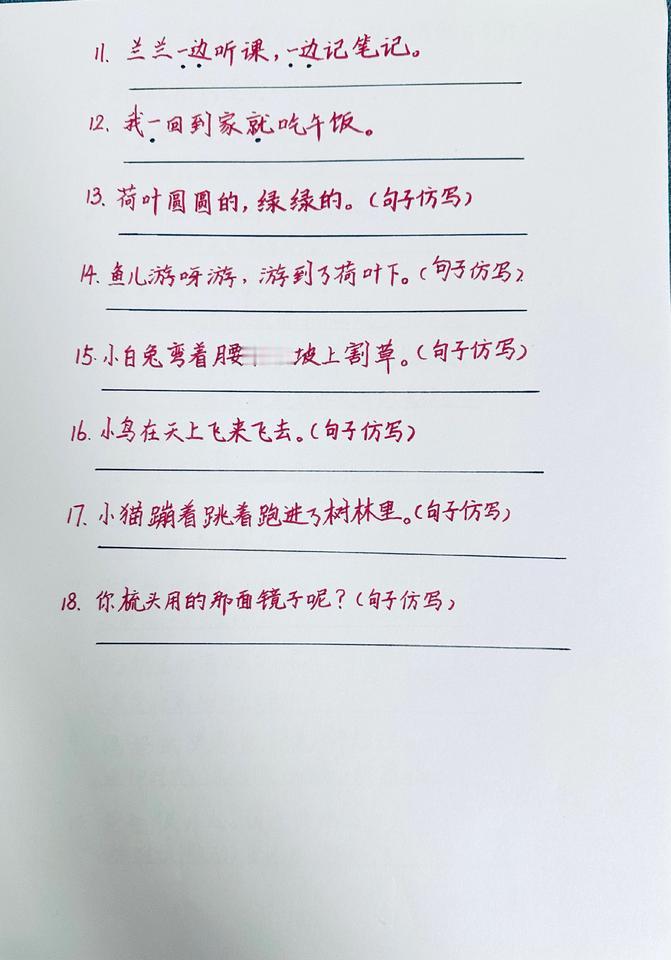 11. 兰兰一边听课,一边记笔记。
12. 我一回到家就吃午饭。
13. 荷叶圆圆的,绿绿的。(句子仿写)
14. 鱼儿游呀游,游到了荷叶下。(句子仿写)
15. 小白兔弯着腰 坡上割草。(句子仿写)
16. 小鸟在天上飞来飞去。(句子仿写)
17. 小猫蹦着跳着跑进了树林里。(句子仿写)
18. 你梳头用的那面镜子呢?(句子仿写)